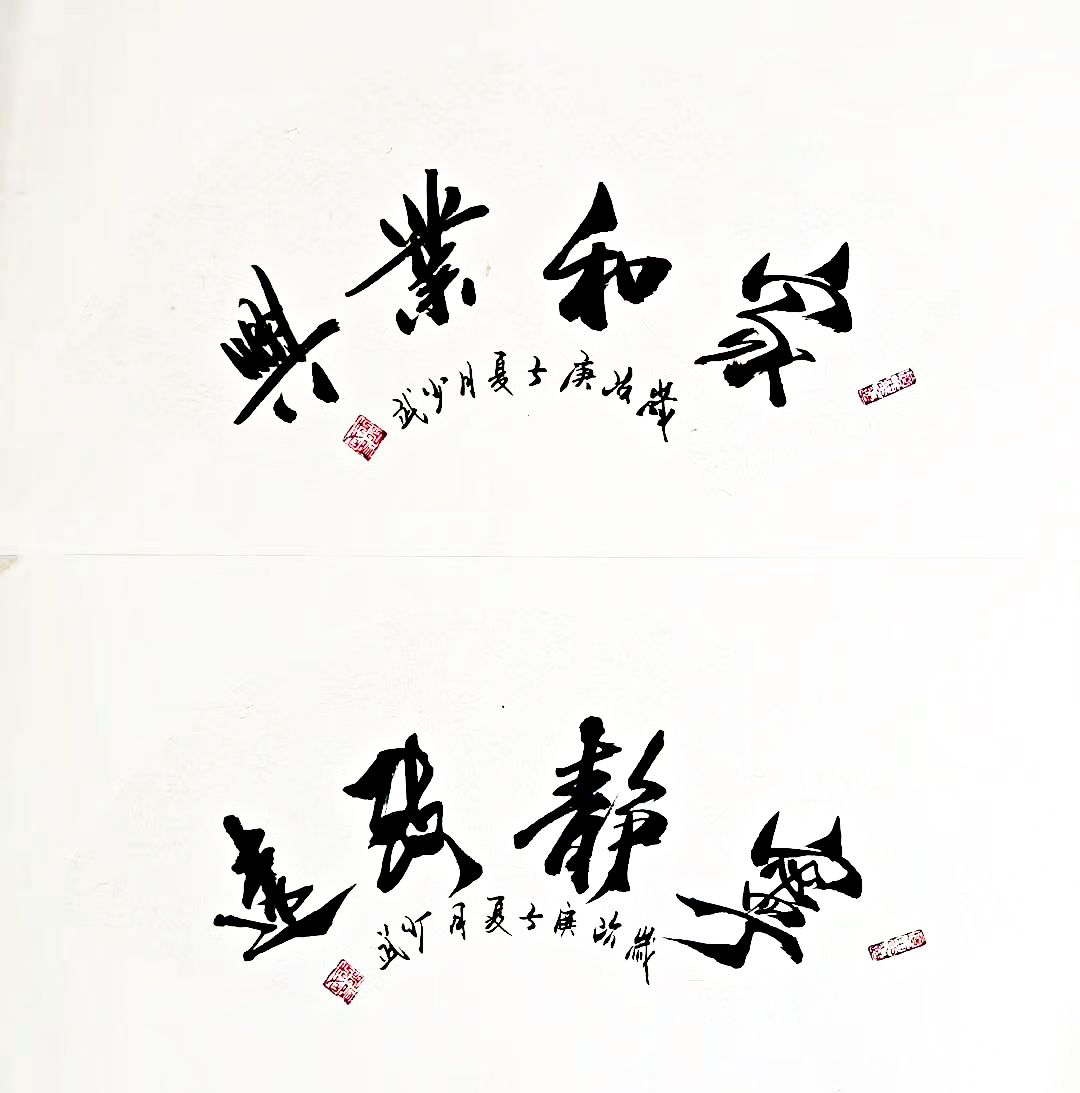 家和業興
歲次庚子夏月少武
寧靜致遠
歲次庚子夏月少武